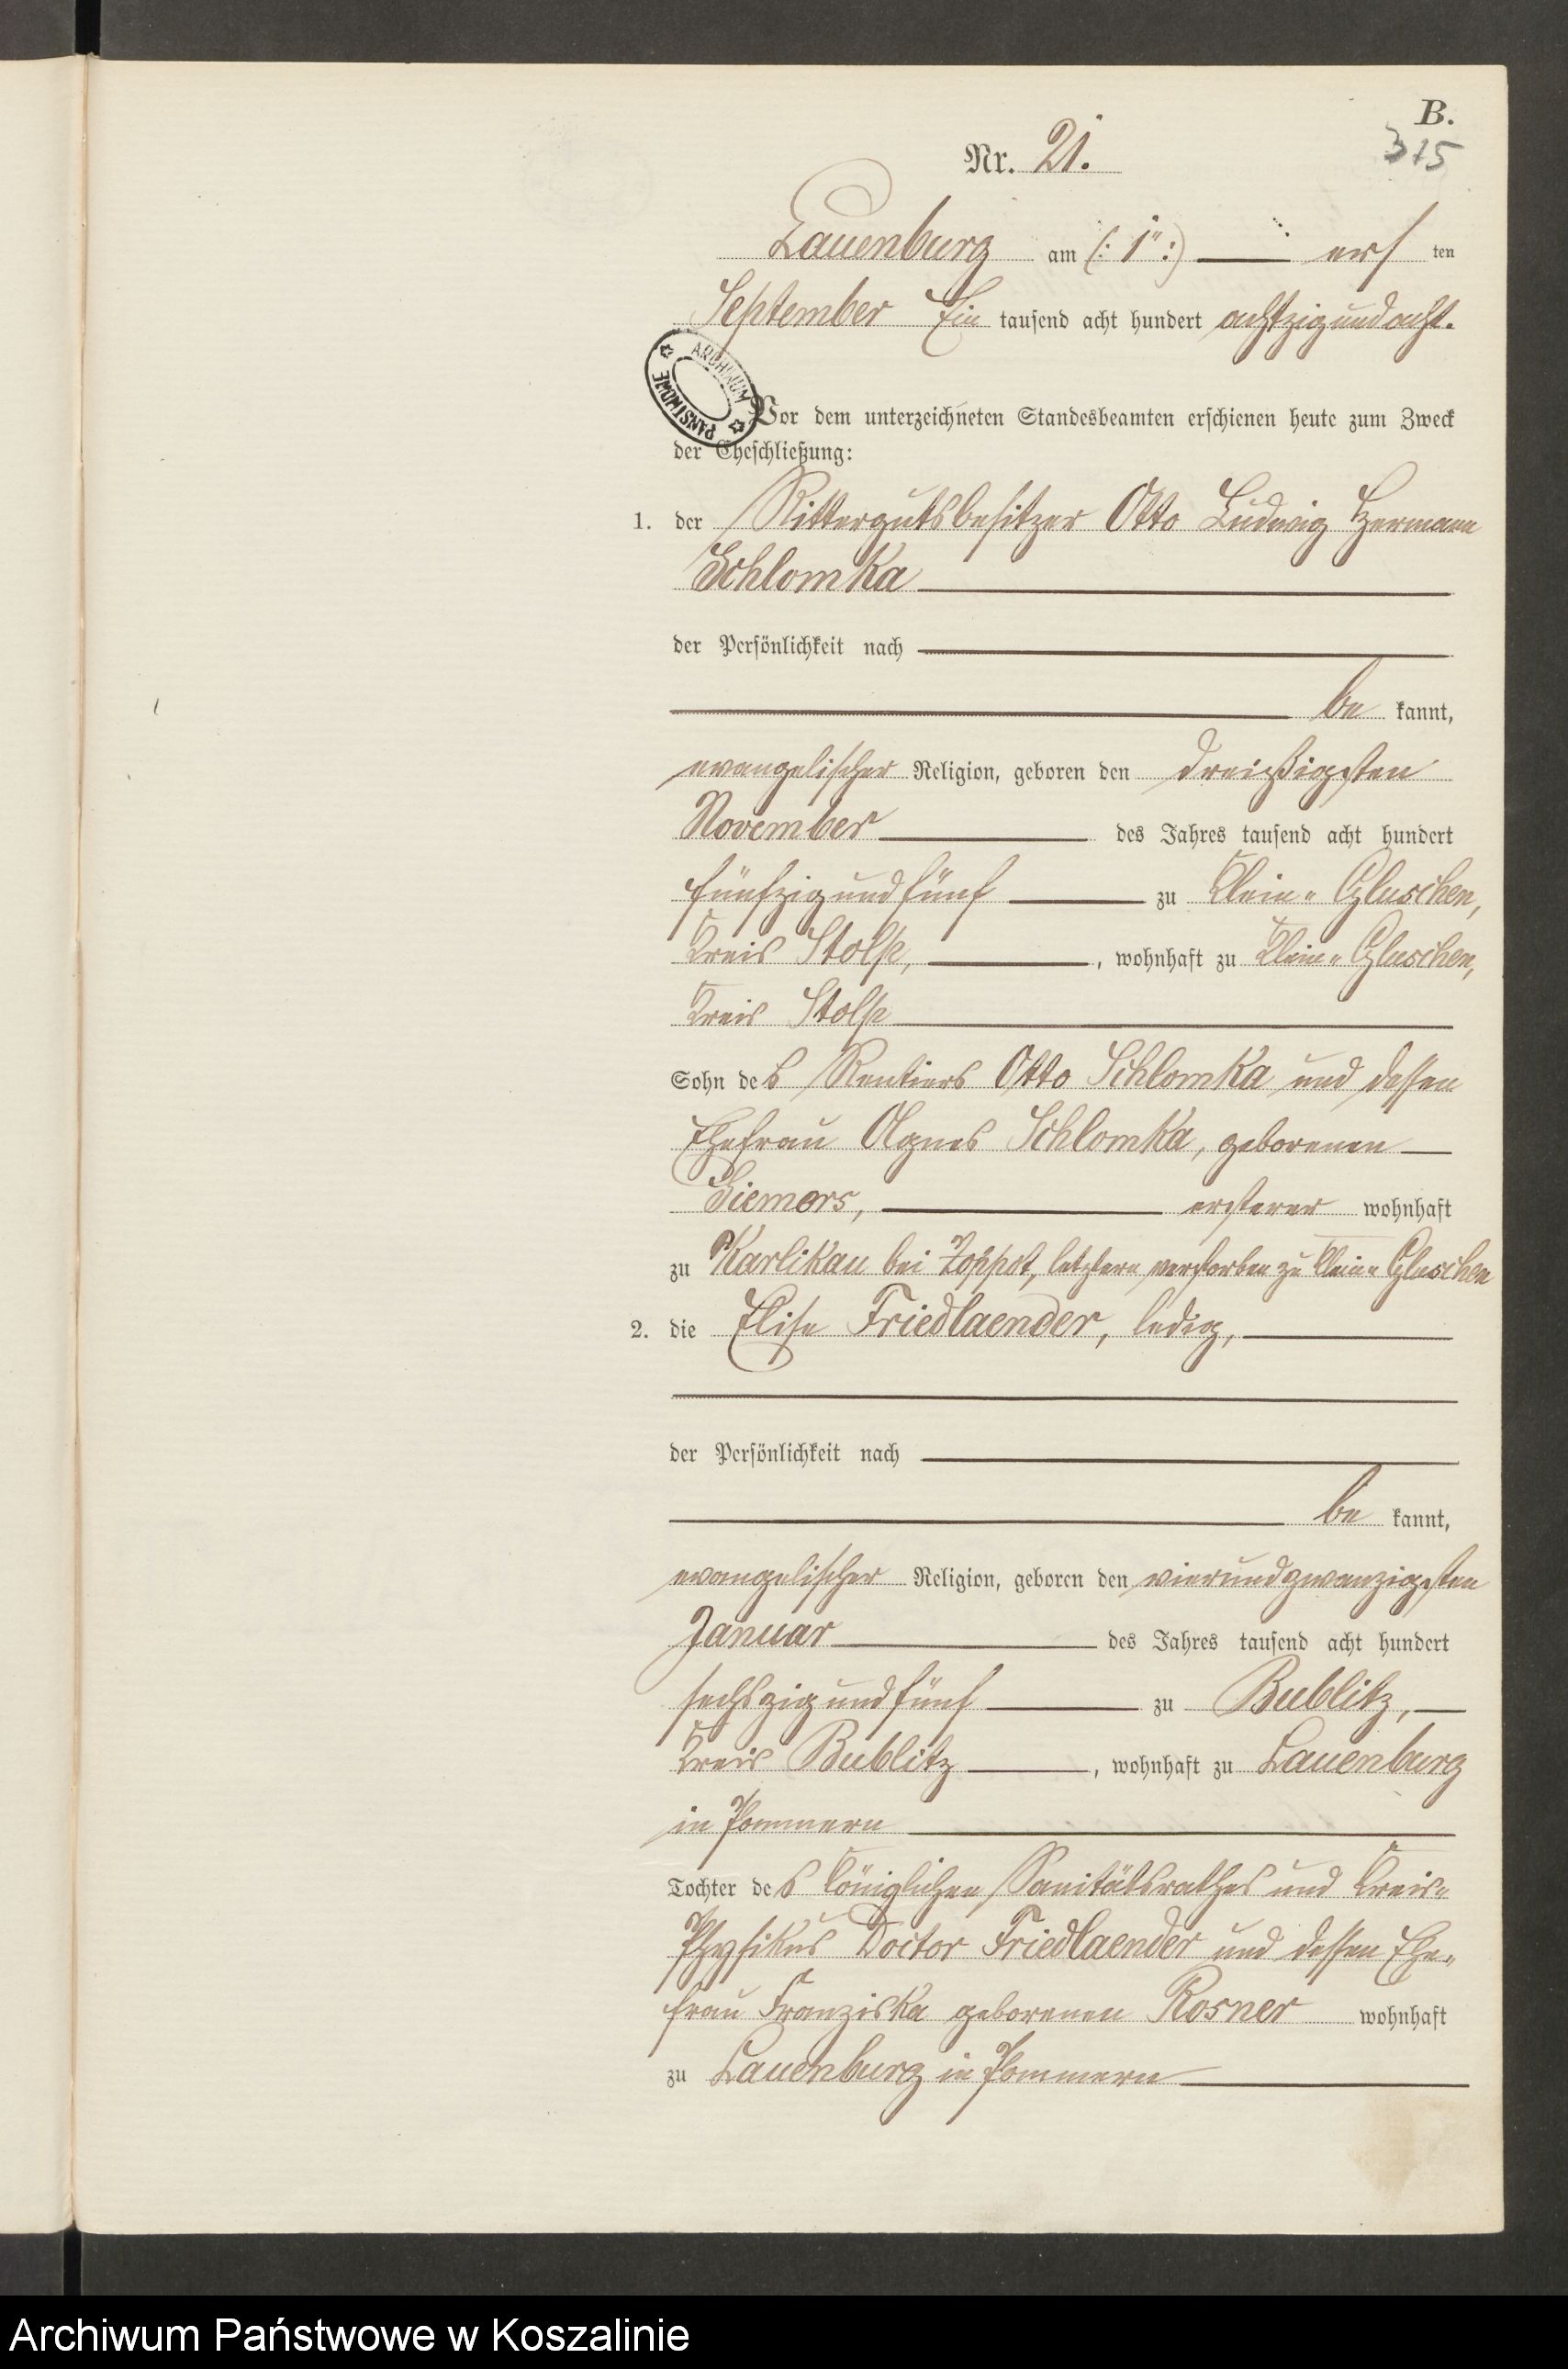 B.
315
Nr. 21.
Lauenburg am (: 1" :) ersten
September Ein tausend acht hundert achtzig und acht.
ARCHIWUM PAŃSTWOWE
Vor dem unterzeichneten Standesbeamten erschienen heute zum Zweck
der Eheschließung:
1. der Rittergutsbesitzer Otto Ludwig Hermann
Schlomka
der Persönlichkeit nach
be kannt,
evangelischer Religion, geboren den dreißigsten
November des Jahres tausend acht hundert
fünfzig und fünf zu Klein-Gluschen,
Kreis Stolp, , wohnhaft zu Klein-Gluschen,
Kreis Stolp
Sohn des Rentiers Otto Schlomka und dessen
Ehefrau Agnes Schlomka, geborenen
Siemers, ersterer wohnhaft
zu Karlikau bei Zoppot, letztere verstorben zu Klein-Gluschen
2. die Elise Friedlaender, ledig,
der Persönlichkeit nach
be kannt,
evangelischer Religion, geboren den vierundzwanzigsten
Januar des Jahres tausend acht hundert
sechszig und fünf zu Bublitz,
Kreis Bublitz , wohnhaft zu Lauenburg
in Pommern
Tochter des Königlichen Sanitätsrathes und Kreis-
Physikus Doctor Friedlaender und dessen Ehe-
frau Franziska geborenen Rosner wohnhaft
zu Lauenburg in Pommern
Archiwum Państwowe w Koszalinie